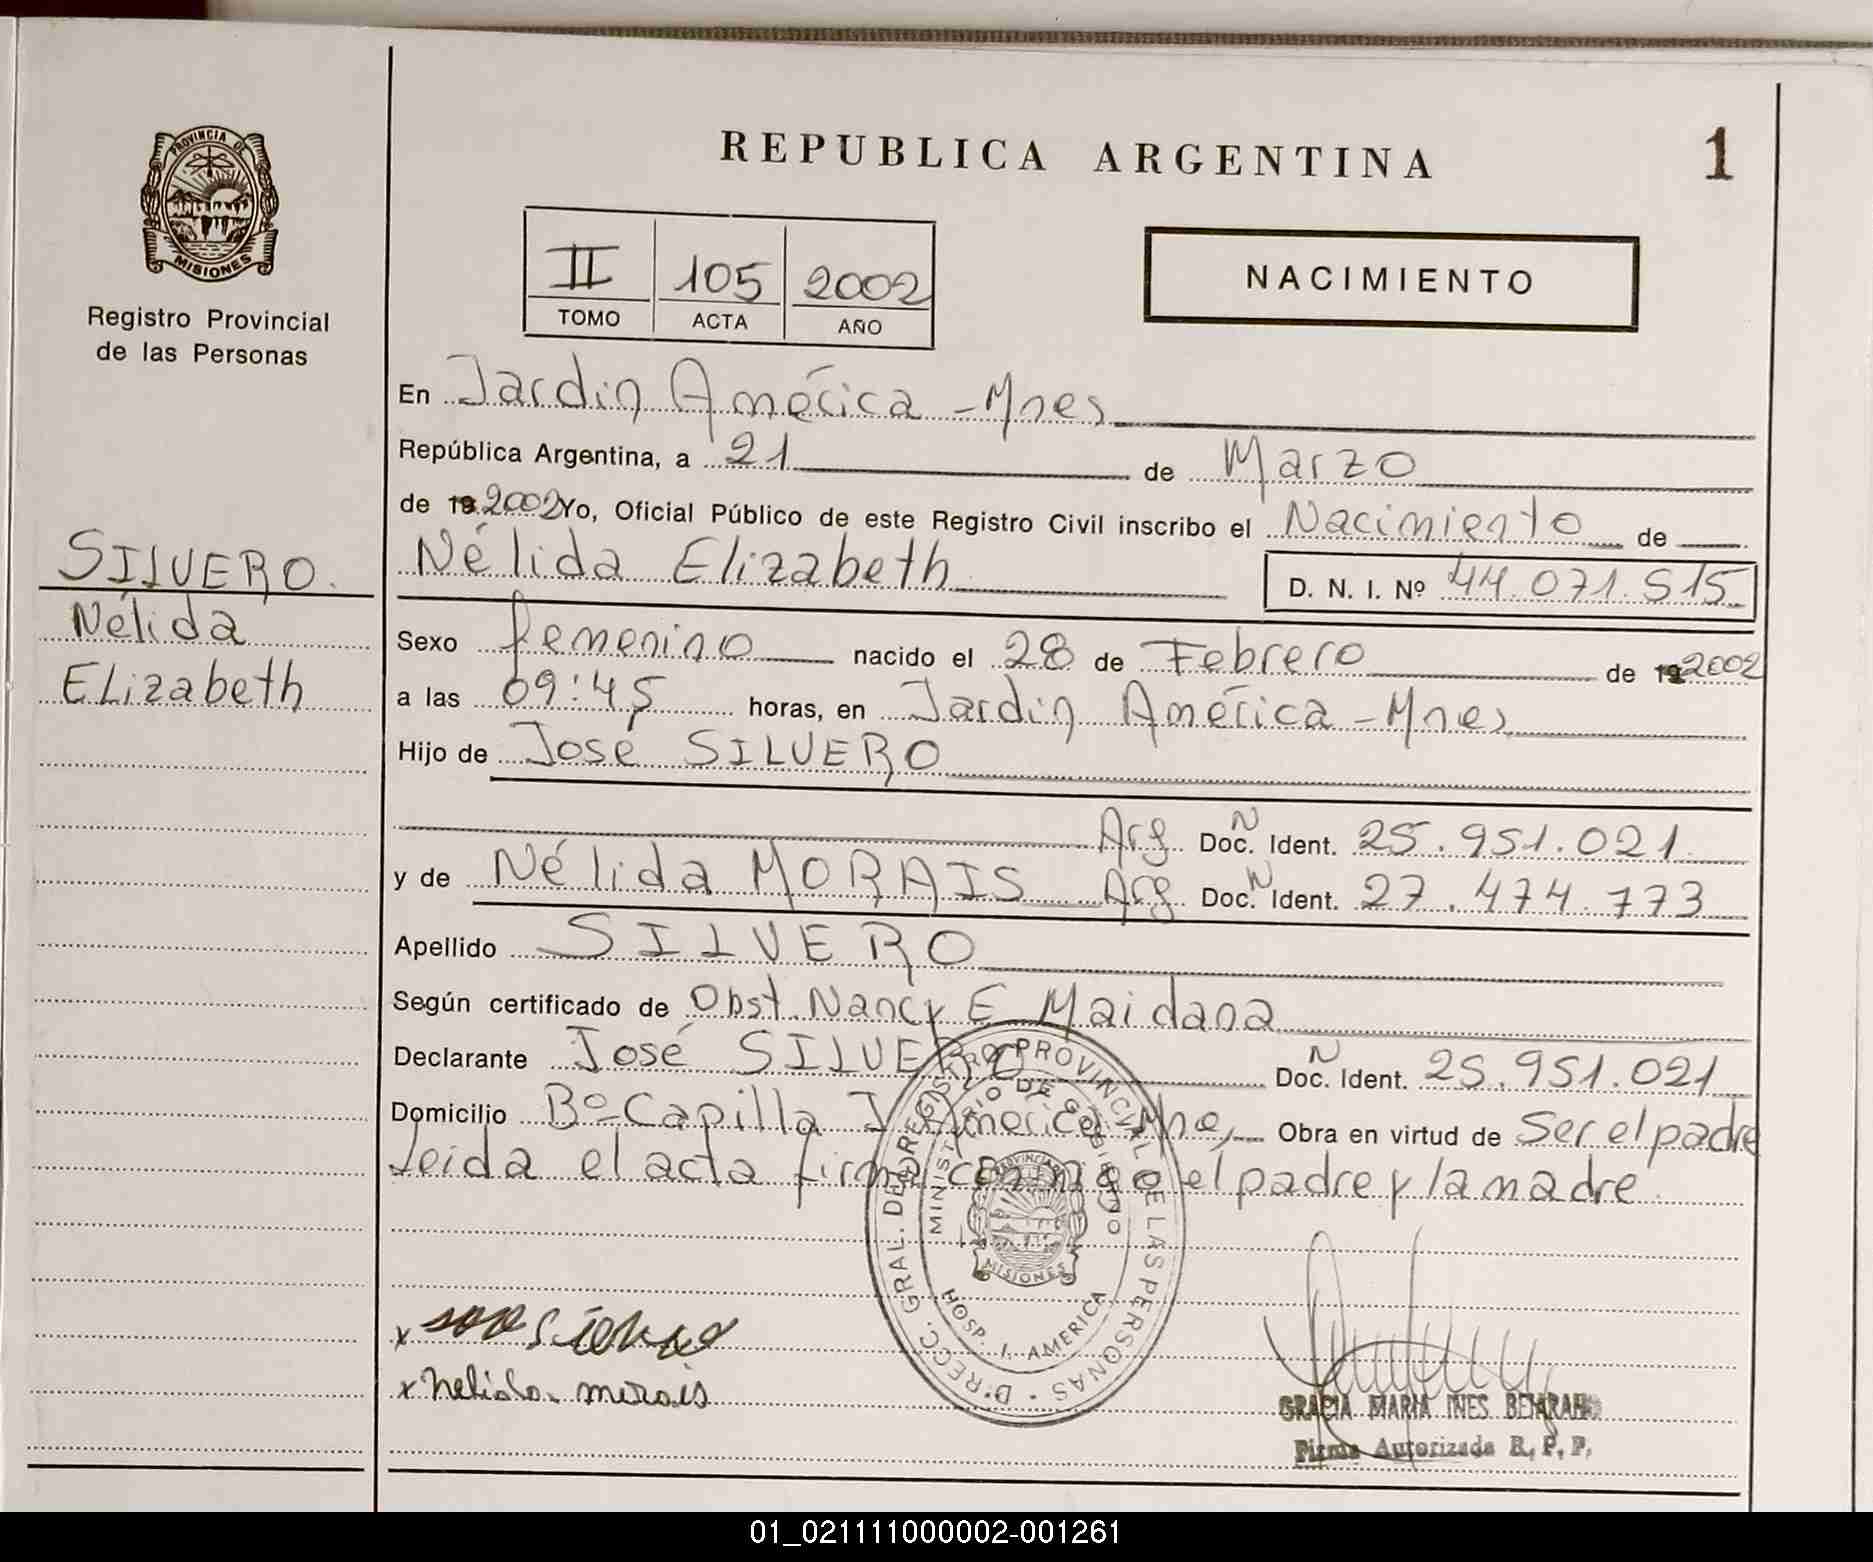 PROVINCIA DE
MISIONES
Registro Provincial
de las Personas
SILVERO.
Nélida
ELizabeth
REPUBLICA ARGENTINA
1
II 105 2002
TOMO ACTA AÑO
NACIMIENTO
En Jardin América - Mnes
República Argentina, a 21 de Marzo
de 19 2002 Yo, Oficial Público de este Registro Civil inscribo el Nacimiento de
Nélida Elizabeth D. N. I. Nº 44.071.515
Sexo femenino nacido el 28 de Febrero de 19 2002
a las 09:45 horas, en Jardin América - Mnes
Hijo de José SILVERO
Arg Doc. N Ident. 25.951.021
y de Nélida MORAIS Arg Doc. N Ident. 27.474.773
Apellido SILVERO
Según certificado de Obst. Nancy E Maidana
Declarante José SILVERO Doc. N Ident. 25.951.021
Domicilio Bº Capilla J. América Mnes Obra en virtud de Ser el padre
Leida el acta firma conmigo el padre y la madre.
DIRECC. GRAL. DE REGISTRO PROVINCIAL DE LAS PERSONAS
MINISTERIO DE GOBIERNO
PROVINCIA DE
MISIONES
HOSP. J. AMERICA
x
x Nelida. morais
GRACIA MARIA INES BEJARANO
Firma Autorizada R. P. P.
01_021111000002-001261